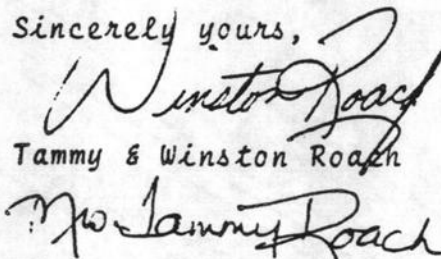 Sincerely yours,
Winston Roach
Tammy & Winston Roach
Mrs. Tammy Roach